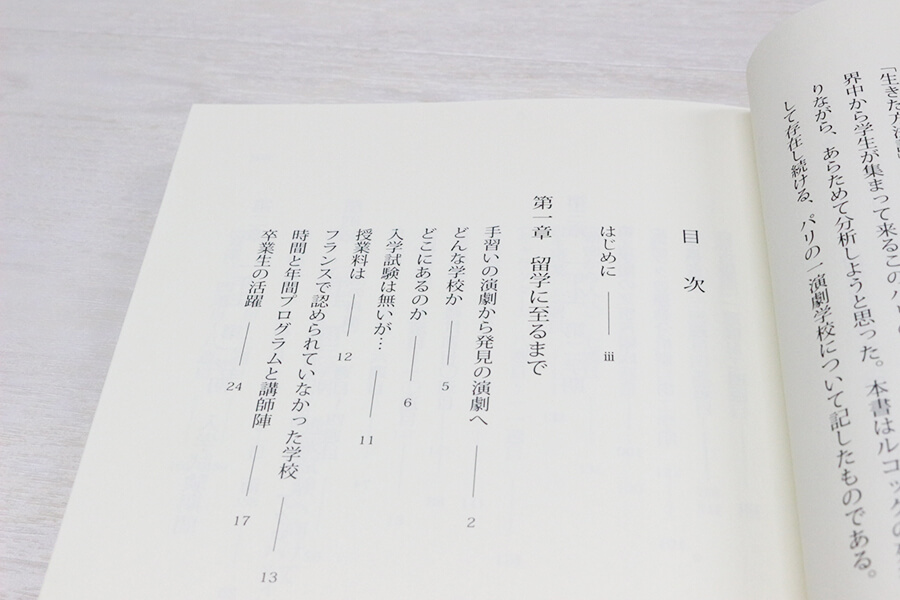 「生きた方法
界中から学生が集まって来るこの
りながら、あらためて分析しようと思った。本書はルコックの
して存在し続ける、パリの一演劇学校について記したものである。
目次
はじめに iii
第一章 留学に至るまで
手習いの演劇から発見の演劇へ 2
どんな学校か 5
どこにあるのか 6
入学試験は無いが… 11
授業料は 12
フランスで認められていなかった学校 13
時間と年間プログラムと講師陣 17
卒業生の活躍 24